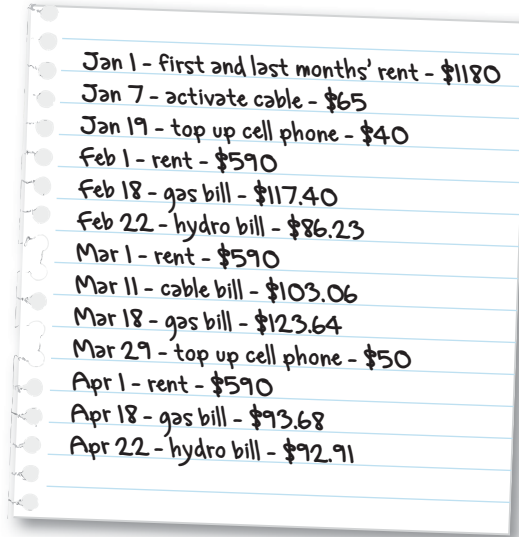 Jan 1 - first and last months' rent - $1180
Jan 7 - activate cable - $65
Jan 19 - top up cell phone - $40
Feb 1 - rent - $590
Feb 18 - gas bill - $117.40
Feb 22 - hydro bill - $86.23
Mar 1 - rent - $590
Mar 11 - cable bill - $103.06
Mar 18 - gas bill - $123.64
Mar 29 - top up cell phone - $50
Apr 1 - rent - $590
Apr 18 - gas bill - $93.68
Apr 22 - hydro bill - $92.91